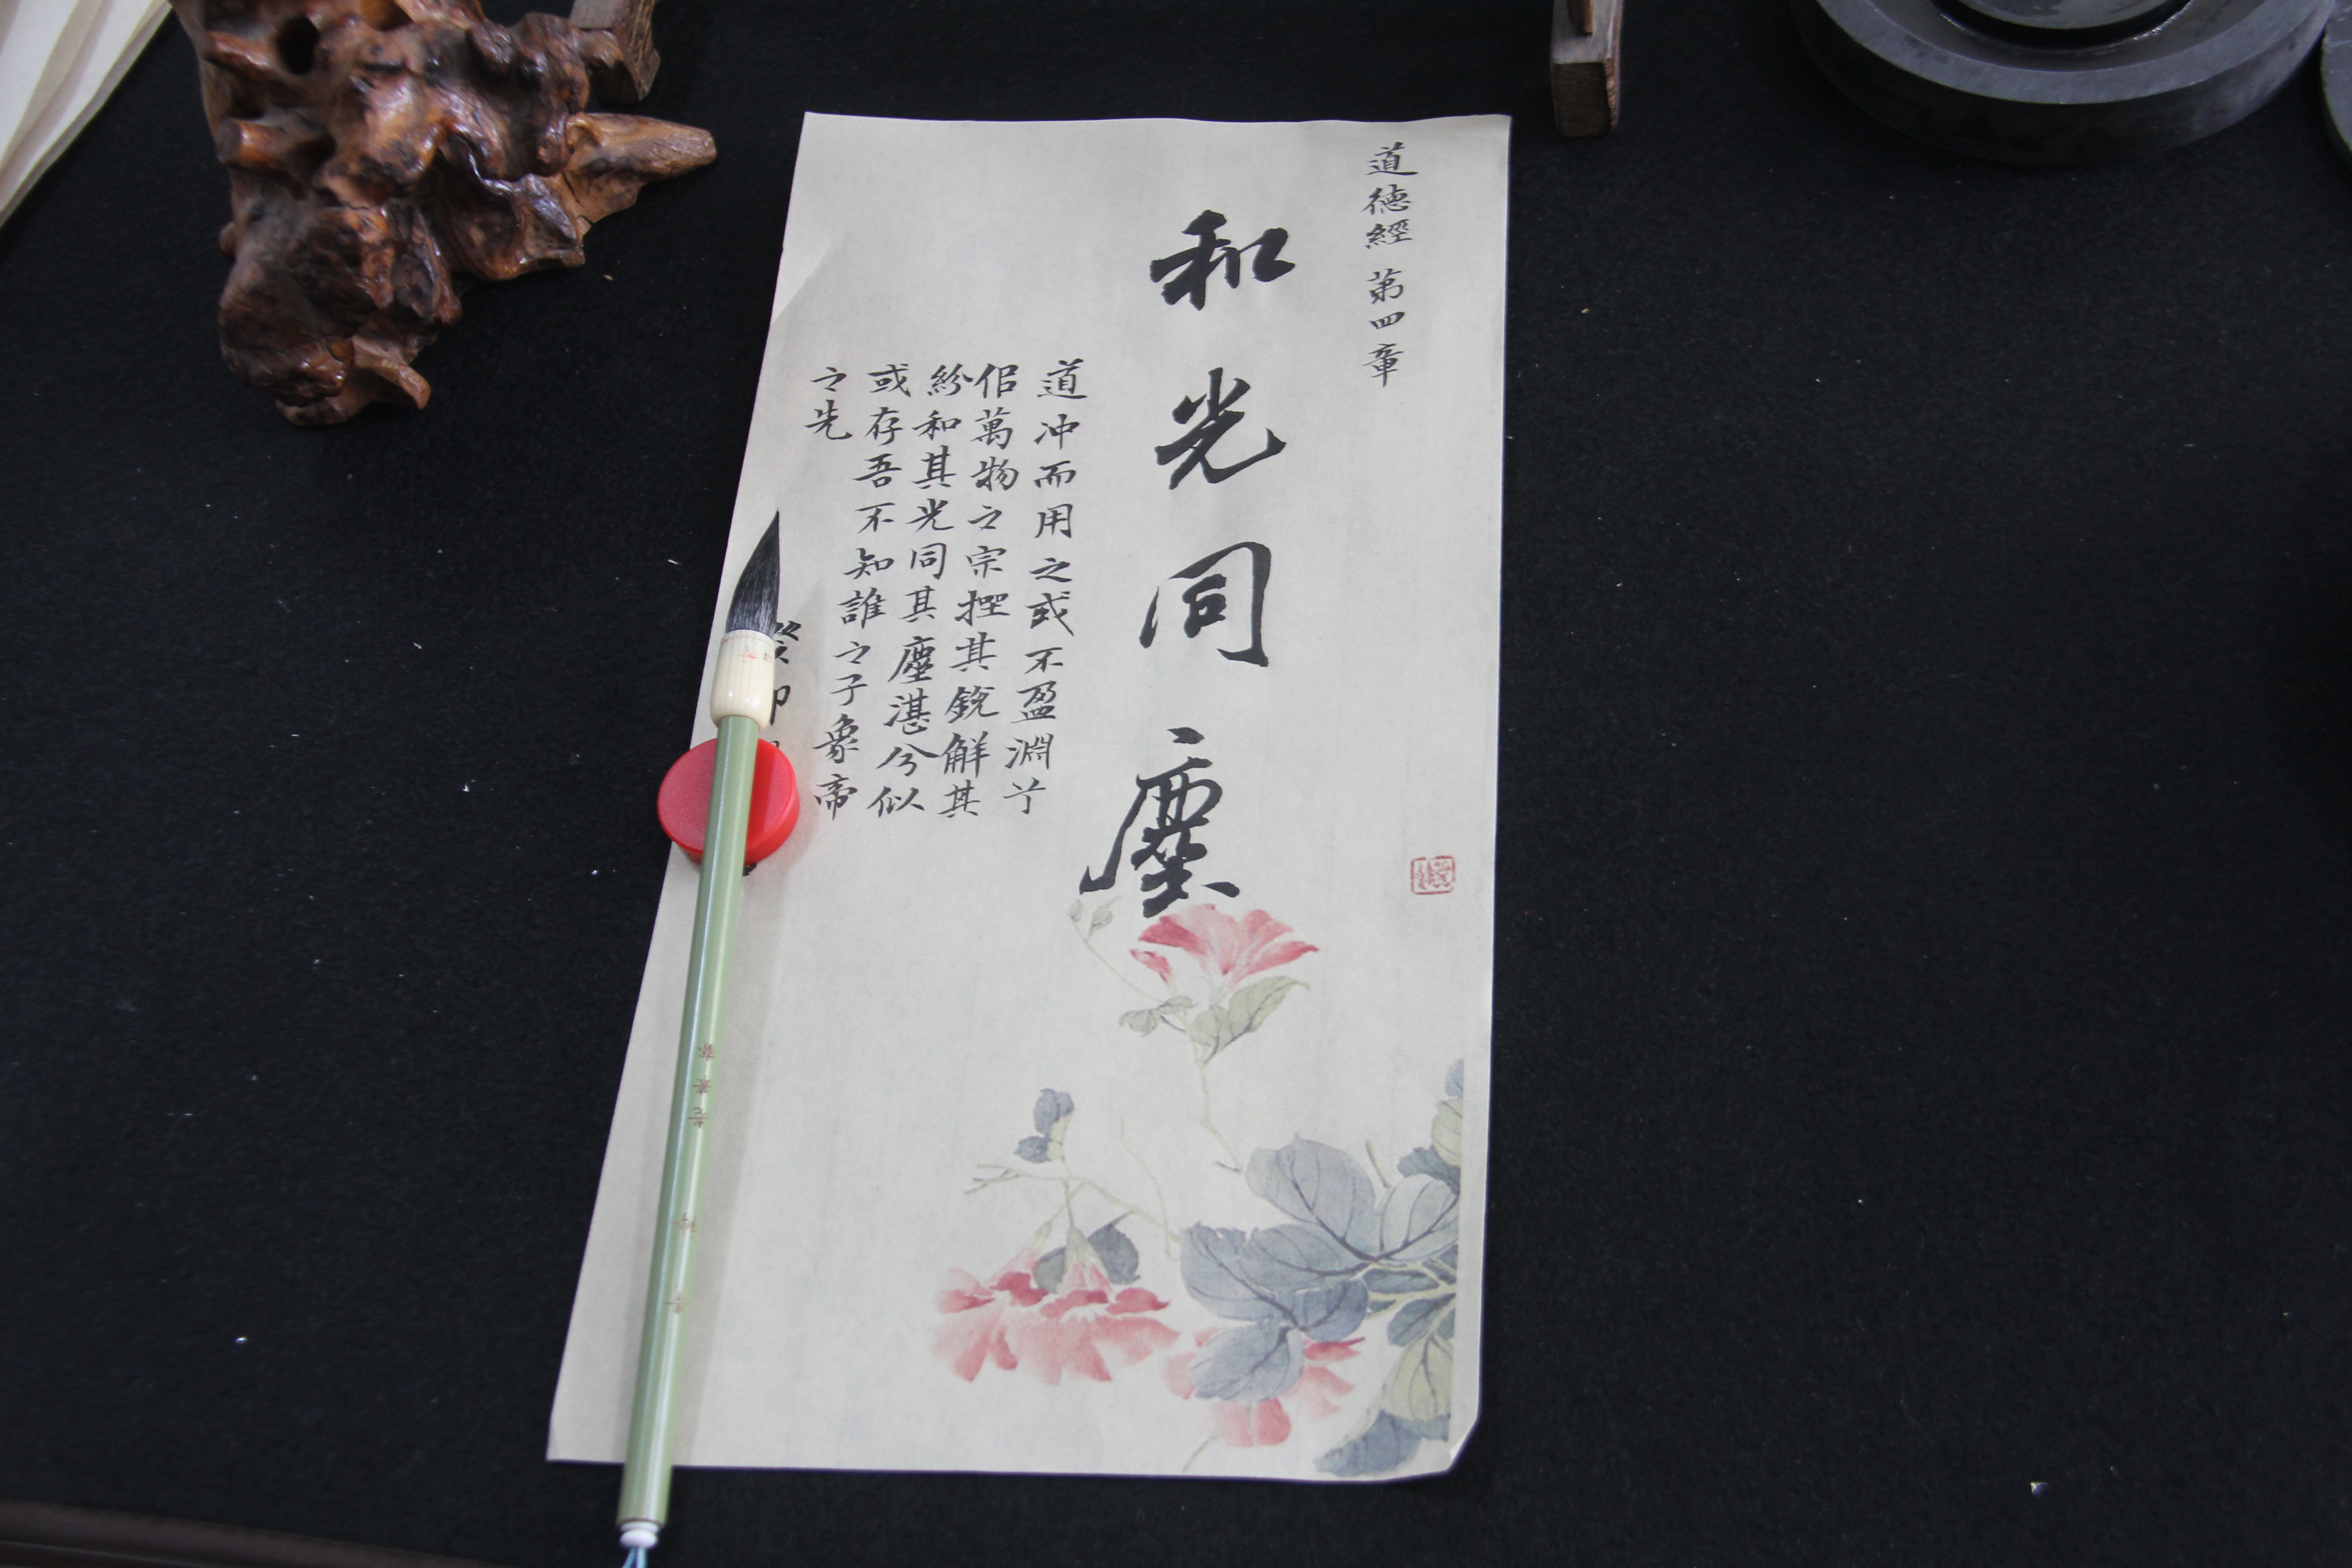 道德經 第四章
和光同塵
道冲而用之或不盈淵兮
佀萬物之宗挫其銳解其
紛和其光同其塵湛兮似
或存吾不知誰之子象帝
之先
癸卯